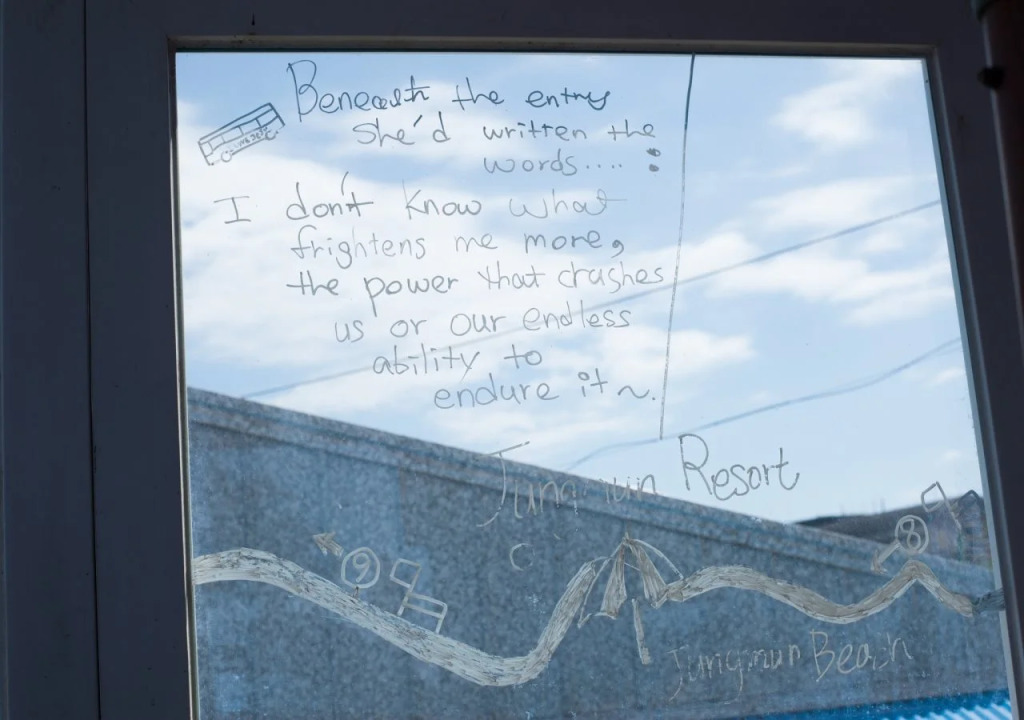 Beneath the entry
She'd written the
words.... :
I don't know what
frightens me more,
the power that crushes
us or our endless
ability to
endure it ~.
Jungmun Resort
8
9
Jungmun Beach